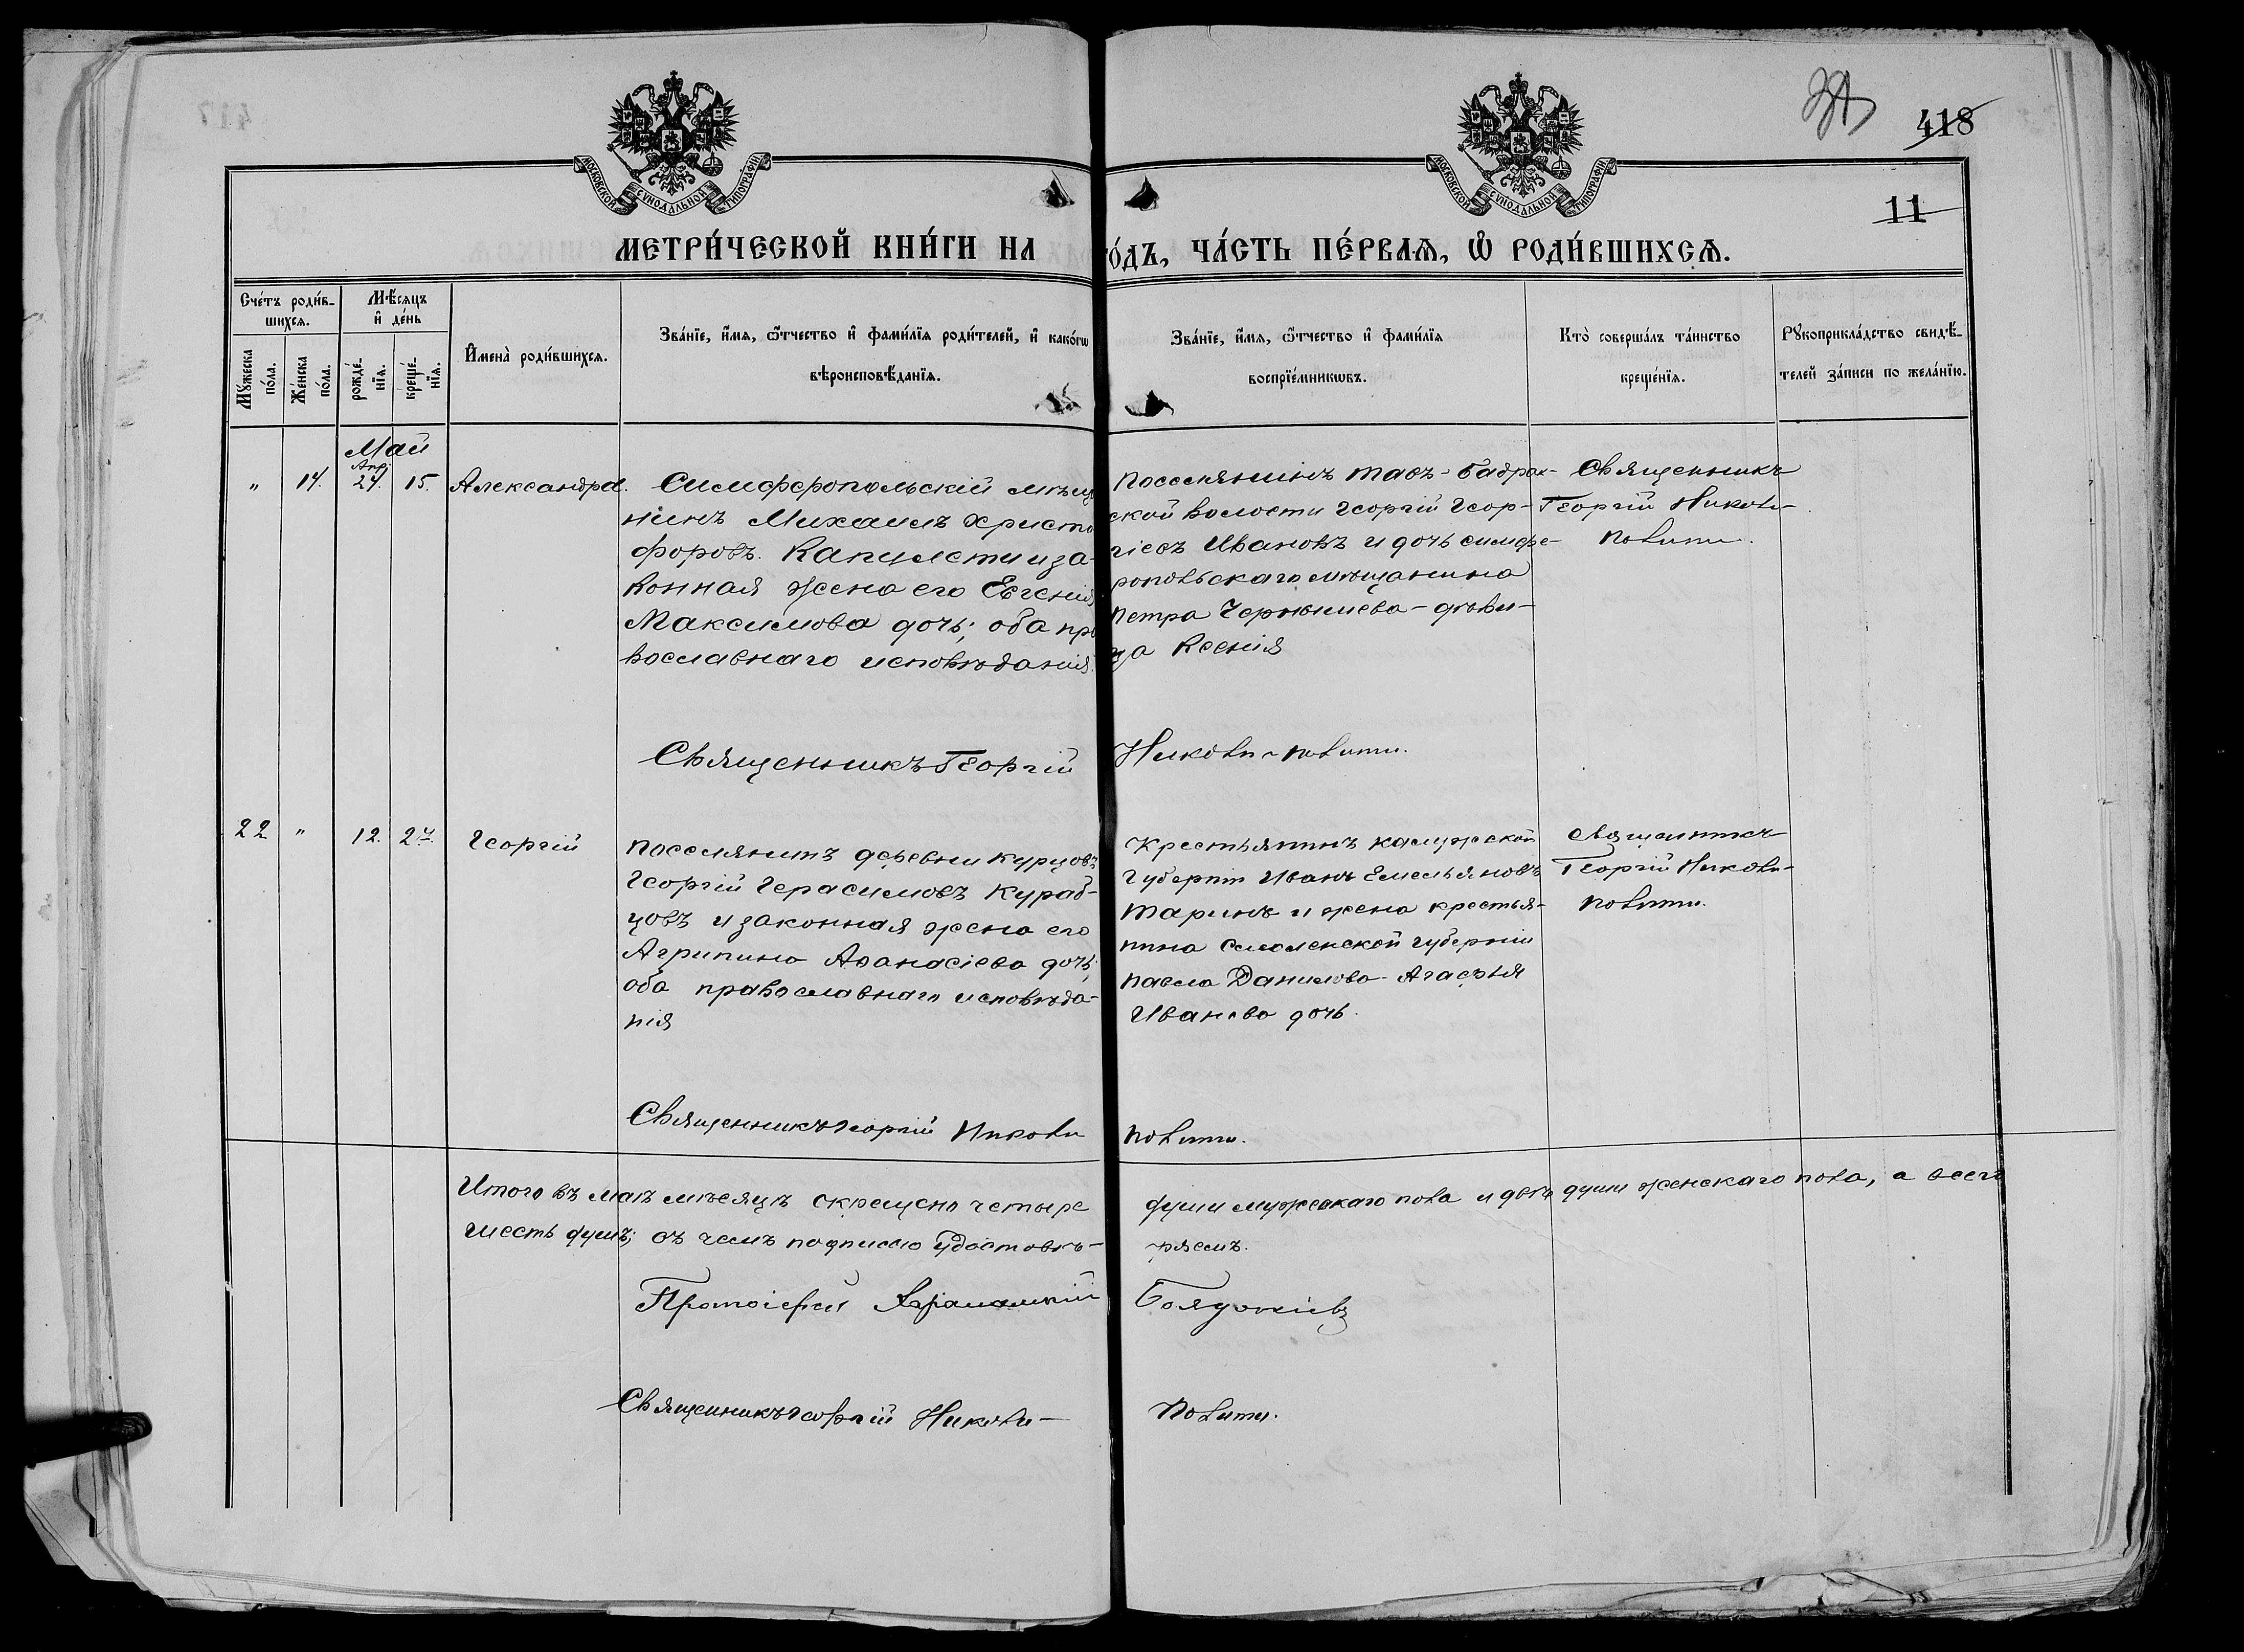 418
11
МОСКОВСКОЙ СѴНОДАЛЬНОЙ ТИПОГРАФІИ
МОСКОВСКОЙ СѴНОДАЛЬНОЙ ТИПОГРАФІИ
МЕТРИ́ЧЕСКОЙ КНИ́ГИ НА ГО́ДЪ, ЧА́СТЬ ПЕ́РВАѦ, Ѡ҆ РОДИ́ВШИХСѦ.
Сче́тъ роди́в-
шихсѧ.
Мꙋ́жеска по́ла.
Же́нска по́ла.
Мѣ́сѧцъ
и҆ де́нь
рожде́-нїѧ.
креще́-нїѧ.
И҆мена̀ роди́вшихсѧ.
Зва́нїе, и҆́мѧ, ѻ҆́тчество и҆ фами́лїѧ роди́телей, и҆ како́гѡ
вѣроисповѣ́данїѧ.
Зва́нїе, и҆́мѧ, ѻ҆́тчество и҆ фами́лїѧ
воспрїе́мникѡвъ.
Кто̀ соверша́лъ та́инство
креще́нїѧ.
Рꙋкоприкла́дство свидѣ́-
телей за́писи по жела́нїю.
Май
Апр.
" 14. 24. 15. Александра.
Симферопольскій мѣща
нинъ Михаилъ Христо
форовъ Капулсти и за-
конная жена его Евгенія
Максимова дочь; оба пра
вославнаго исповѣданія.
Поселянинъ Таві-Бадрак-
ской волости Георгій Геор-
гіевъ Ивановъ и дочь симфе-
ропольскаго мѣщанина
Петра Чернышева - дѣви-
ца Ксенія
Священникъ
Георгій Николи-
Повити.
Священникъ Георгій Николи-Повити.
22 " 12. 24. Георгій
Поселянинъ деревни Курцовъ
Георгій Герасимовъ Кураб-
цовъ и законная жена его
Агрипина Аѳанасіева дочь;
оба православнаго исповѣда-
нія
Крестьянинъ Калужской
Губерніи Иванъ Емельяновъ
Таринъ и жена крестья-
нина Смоленской губерніи
Павла Данилова Агаѳія
Иванова дочь.
Священникъ
Георгій Николи-
Повити.
Священникъ Георгій Николи Повити.
Итого въ маѣ мѣсяцѣ окрещено четыре души мужескаго пола и двѣ души женскаго пола, а всего
шесть душъ; въ чемъ подписью удостовѣ-ряемъ.
Протоіерей
Священникъ Георгій Николи- Повити.